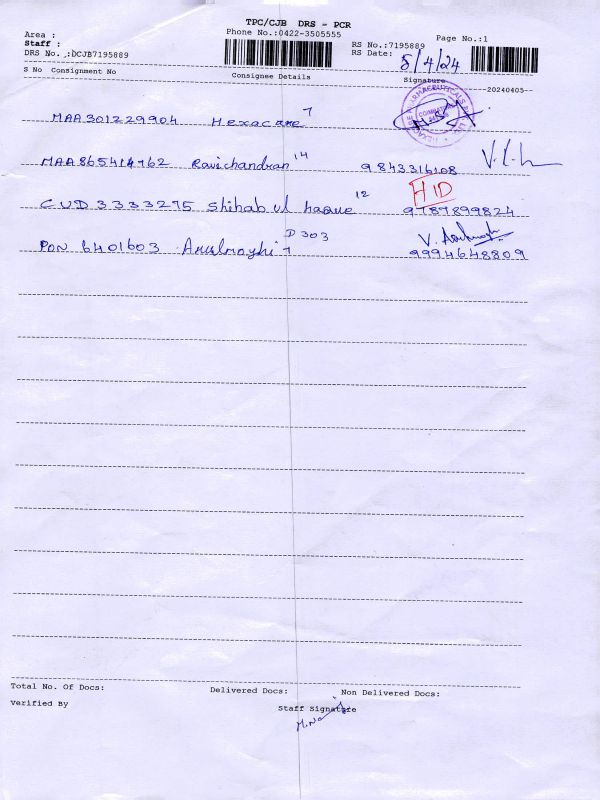 TPC/CJB DRS - PCR
Area :
Phone No.:0422-3505555
Page No.:1
Staff :
RS No.:7195889
DRS No. .:DCJB7195889
RS Date: 5/4/24
S No Consignment No Consignee Details Signature
20240405
7
MAA301229904 Hexacare
COIMBATORE
MAA865414762 Ravichandran 14 9843316108
HID
CUD3333275 Shihab ul haque 12 9787899824
PON 6401603 D303 7 9994648809
Total No. Of Docs: Delivered Docs: Non Delivered Docs:
Verified By Staff Signature